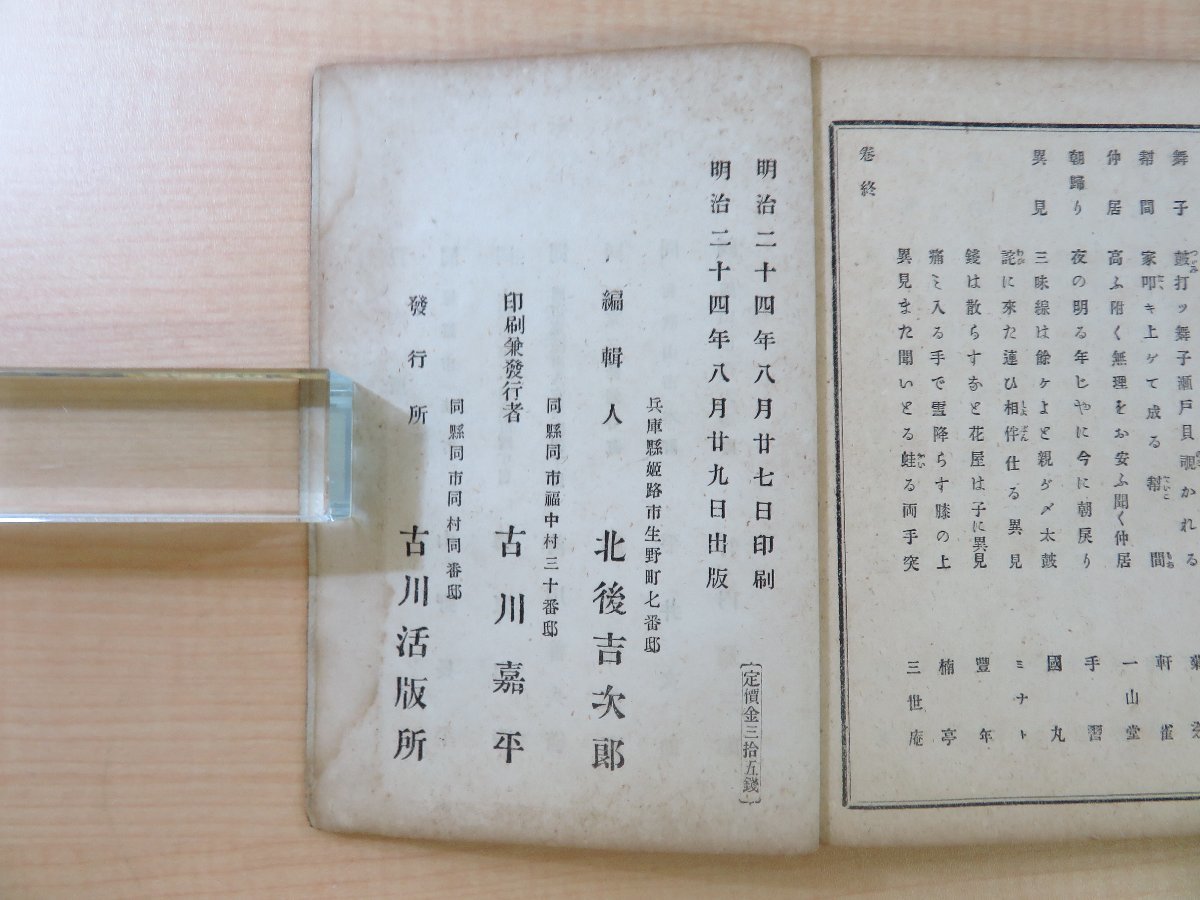 舞子 鼓打ッ舞子瀬戸貝覗かれる
幇間 家叩キ上ゲて成る幇間 軒雀
仲居 高ふ附く無理をお安ふ聞く仲居 一山堂
朝歸り 夜の明る年ヒやに今に朝戻り 手習
異見 三味線は餘ケよと親ダメ太鼓 國丸
詫に來た連ひ相伴仕る異見 ミナト
錢は散らすなと花屋は子に異見 豐年
痛ミ入る手で雪降らす膝の上 楠亭
異見また聞いとる蛙る両手突 三世庵
卷終
明治二十四年八月廿七日印刷
明治二十四年八月廿九日出版
〔定價金三拾五錢〕
兵庫縣姫路市生野町七番邸
編輯人 北後吉次郎
同縣同市福中村三十番邸
印刷兼發行者 古川嘉平
同縣同市同村同番邸
發行所 古川活版所